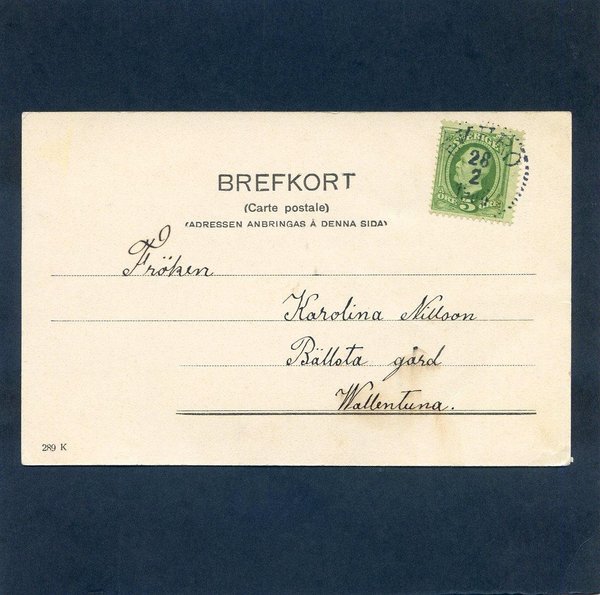 SVERIGE
28
2
ÖRE 5 ÖRE
BREFKORT
(Carte postale)
(ADRESSEN ANBRINGAS Å DENNA SIDA)
Fröken
Karolina Nillson
Bällsta gård
Wallentuna.
289 K